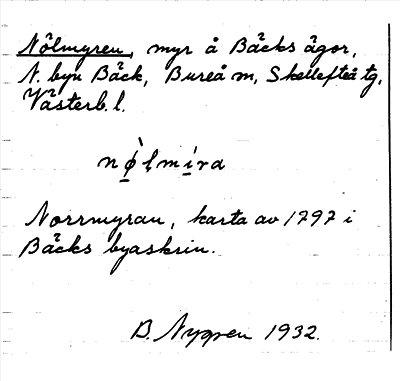 Nölmyren, myr å Bäcks ägor,
N. byn Bäck, Bureå m, Skellefteå tg,
Västerb. l.
nø̀lmira
Norrmyran, karta av 1797 i
Bäcks byaskrin.
B. Nygren 1932.